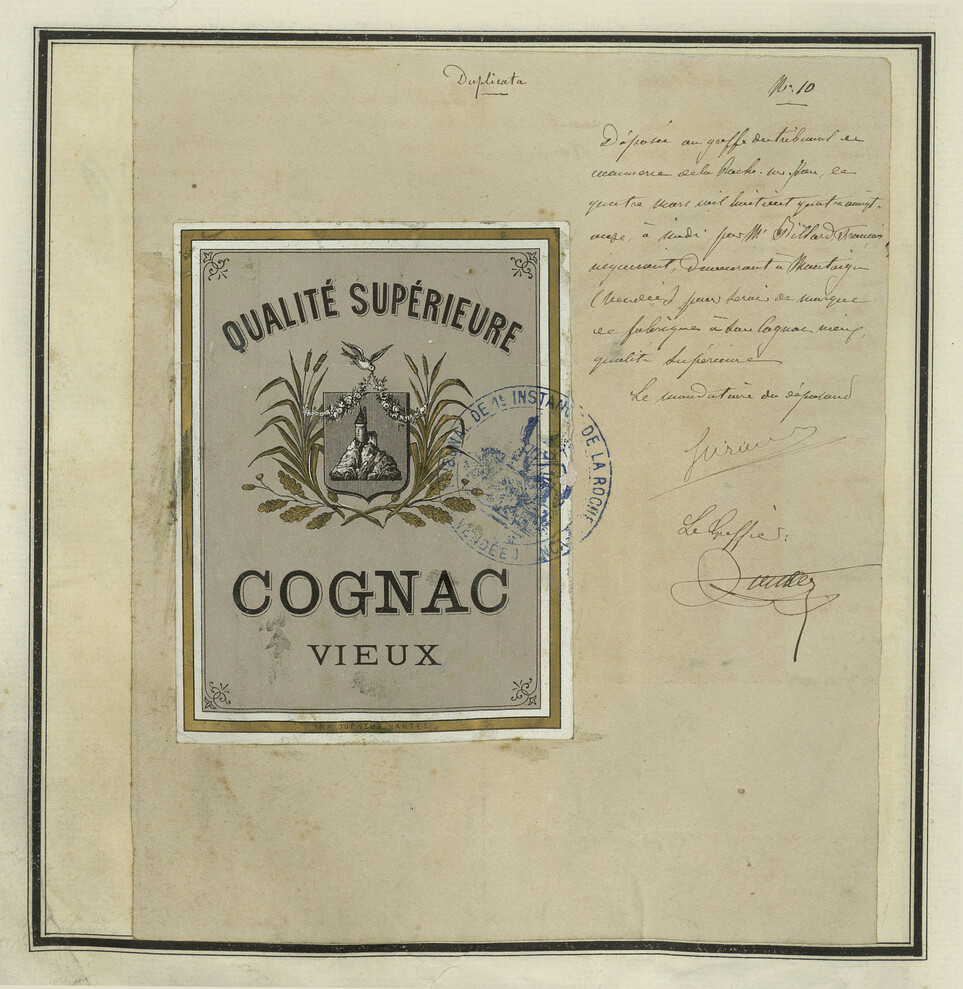 Duplicata
No. 10
Déposée au greffe du tribunal de
commerce de la Roche-sur-Yon, le
quatre mars mil huit cent quatre vingt-
onze, à midi par Mr Billard François,
négociant, demeurant à Montaigu
(Vendée) pour servir de marque
de fabrique à son Cognac vieux,
qualité supérieure
Le mandataire du déposant
Le Greffier:
QUALITÉ SUPÉRIEURE
COGNAC
VIEUX
NANTES.
DE 1e INSTANCE DE LA ROCHE
VENDÉE